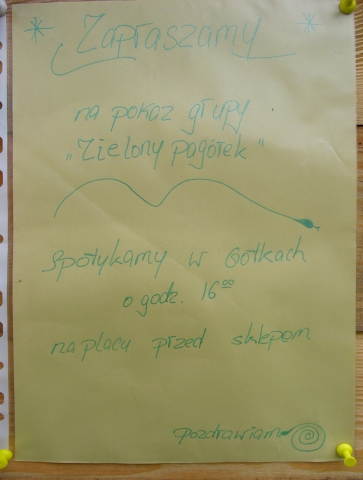 Zapraszamy
na pokaz grupy
„Zielony pagórek"
Spotykamy w Gołkach
o godz. 16⁰⁰
na placu przed sklepem
Pozdrawiam